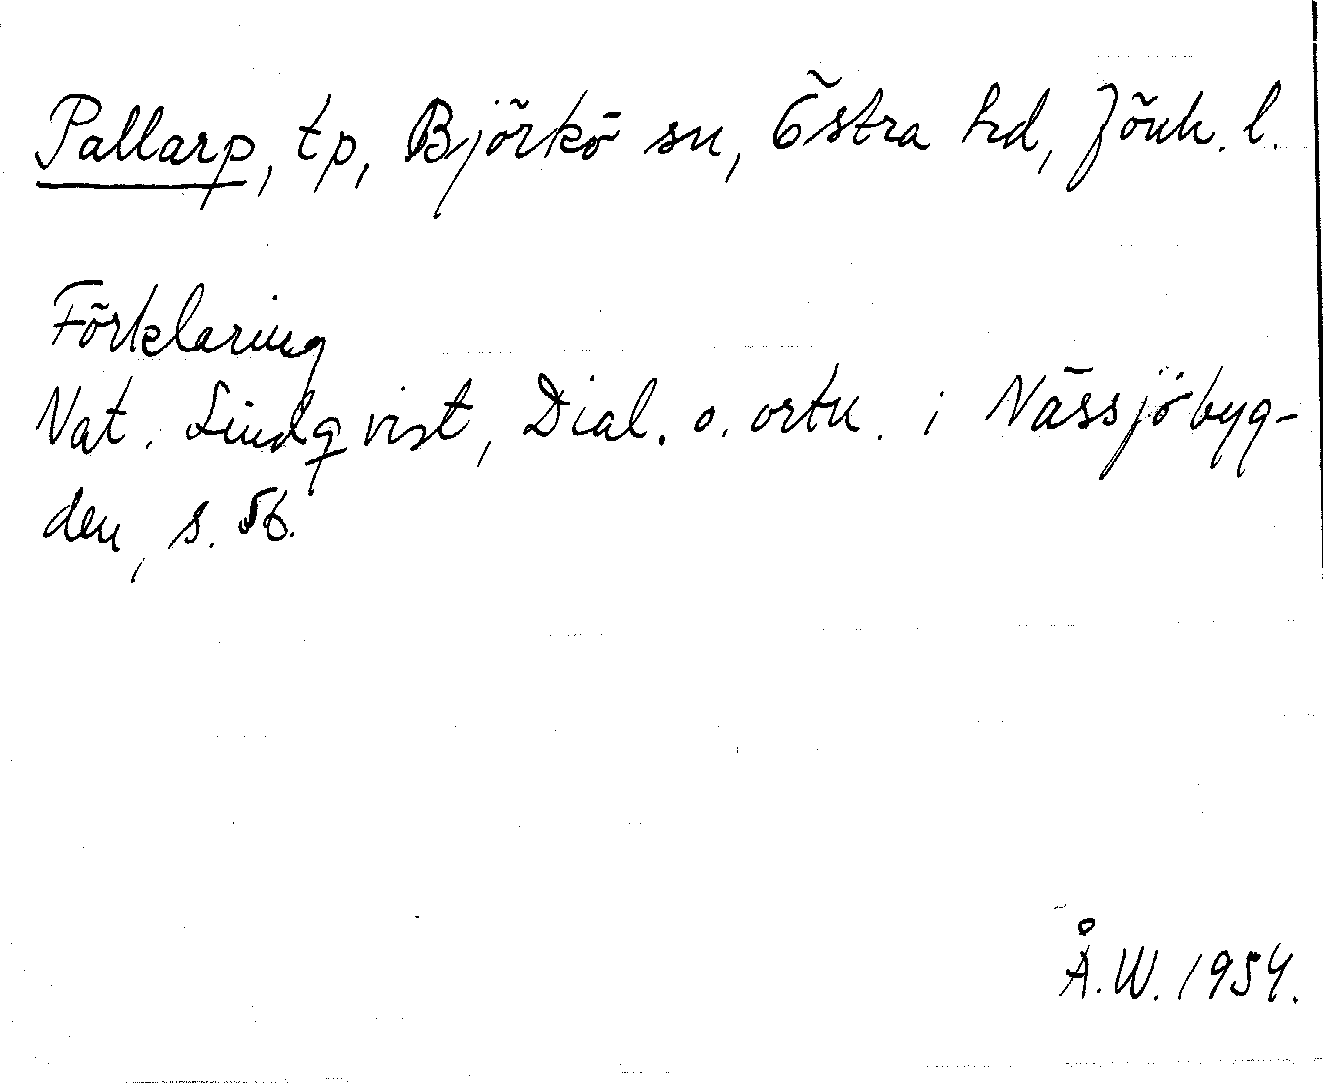 Pallarp, tp, Björkö sn, Östra hd, Jönk. l.
Förklaring
Nat. Lindqvist, Dial. o. ortn. i Nässjöbyg-
den, s. 56.
Å.W. 1954.